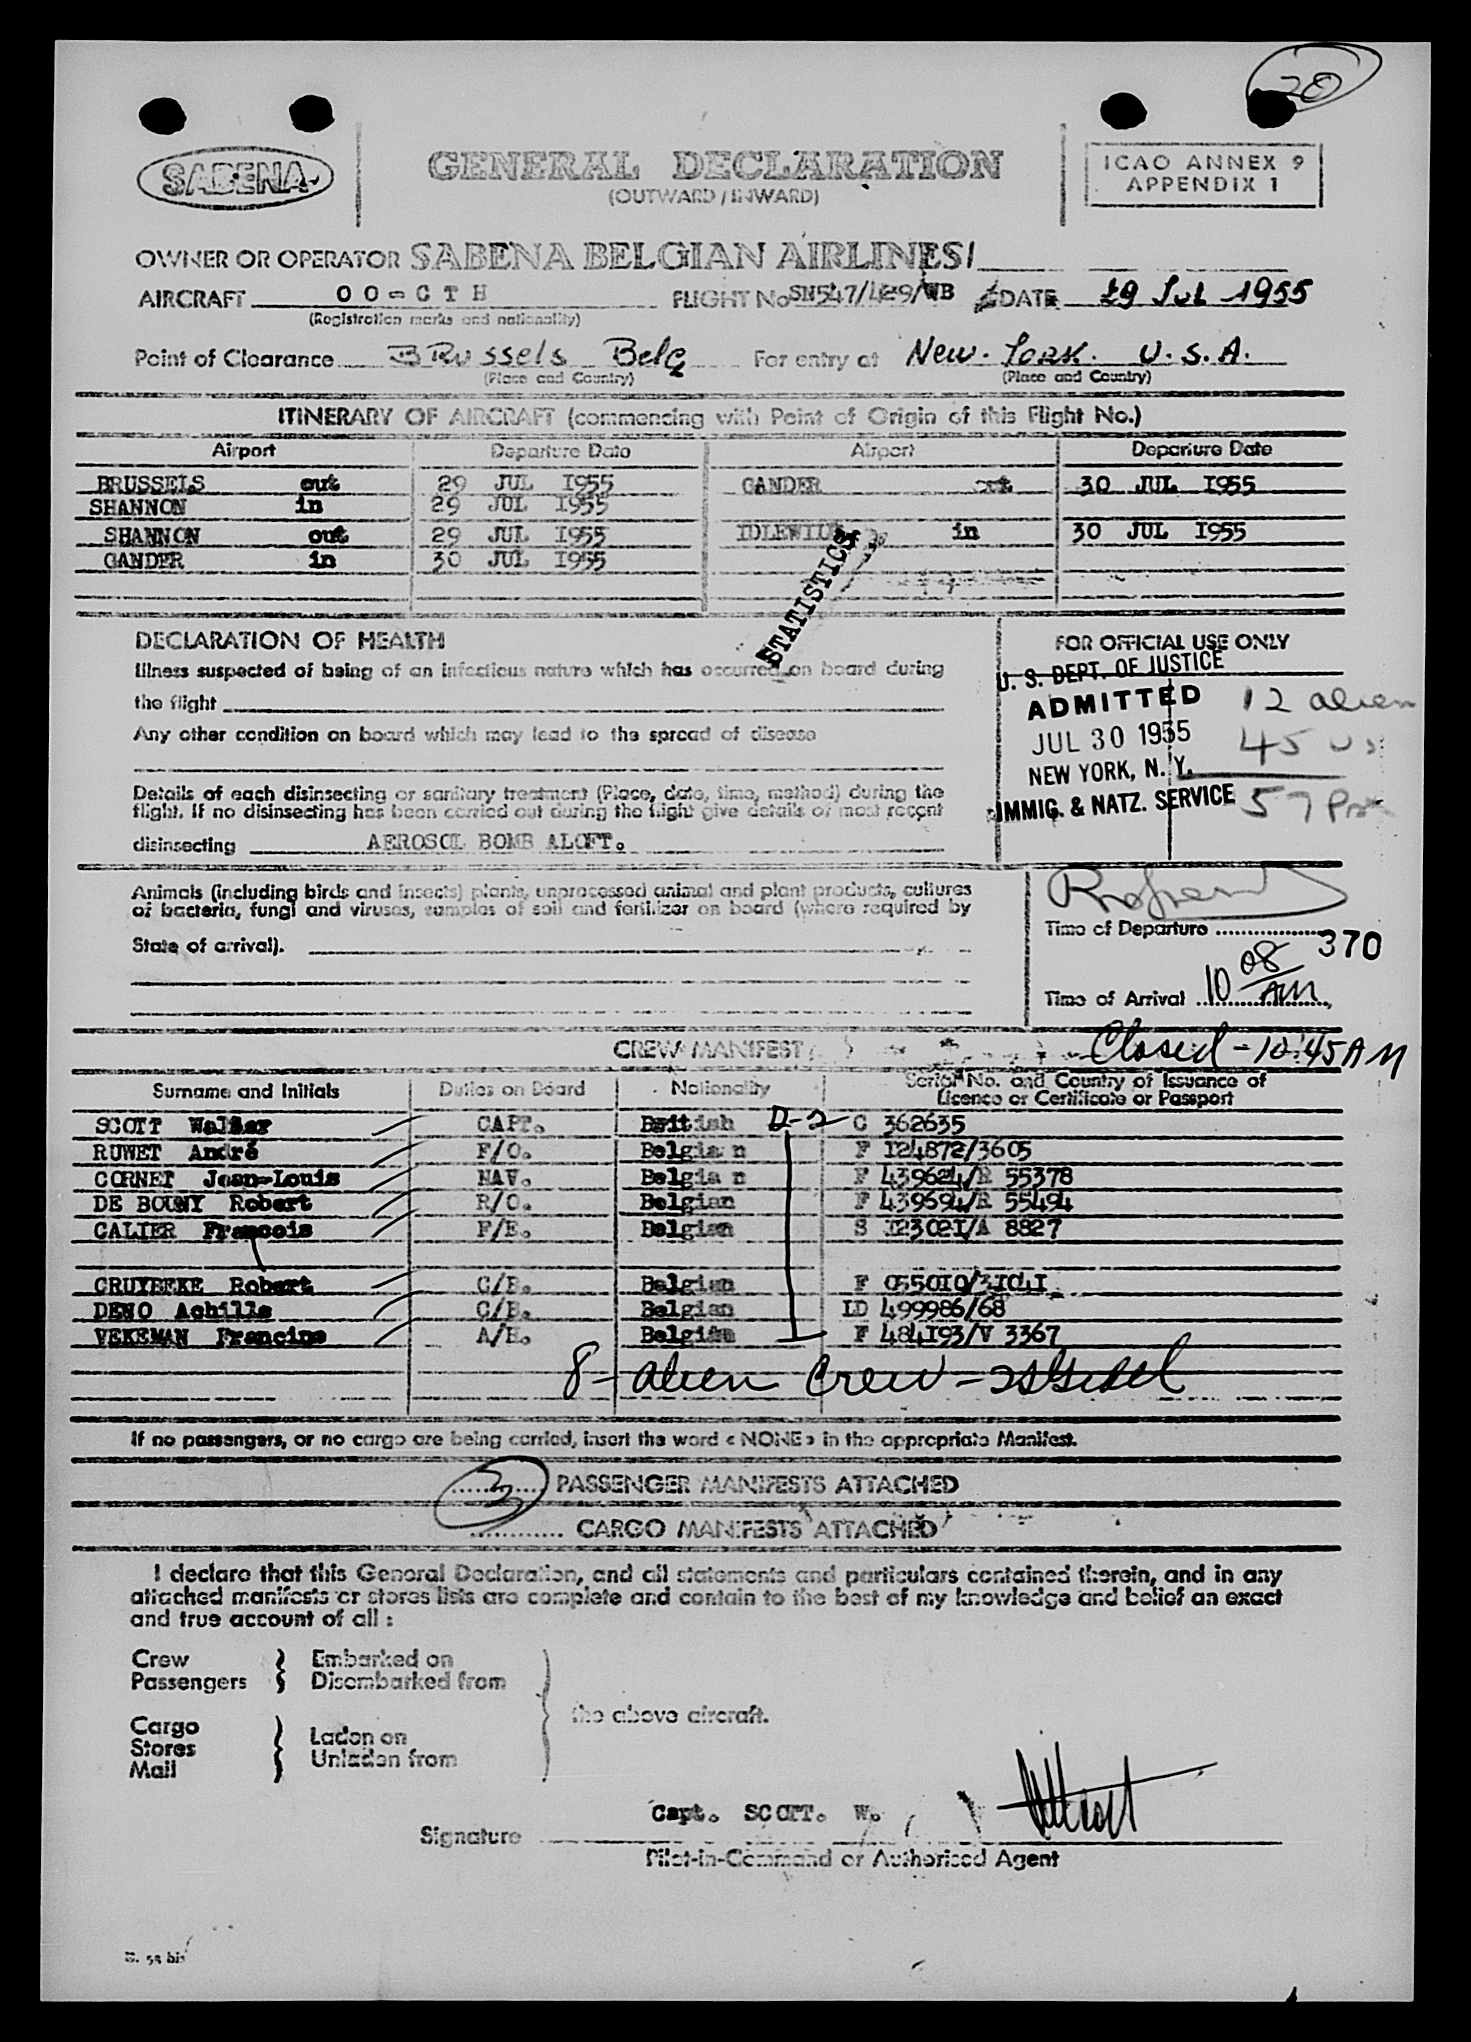 20
SABENA
GENERAL DECLARATION
(OUTWARD / INWARD)
ICAO ANNEX 9
APPENDIX 1
OWNER OR OPERATOR SABENA BELGIAN AIRLINES
AIRCRAFT OO-CTH FLIGHT No SN547/429/WB DATE 29 Jul 1955
(Registration marks and nationality)
Point of Clearance BRussels Belg For entry at New-York. U.S.A.
(Place and Country) (Place and Country)
ITINERARY OF AIRCRAFT (commencing with Point of Origin of this Flight No.)
Airport Departure Date Airport Departure Date
BRUSSELS out 29 JUL I955 GANDER out 30 JUL I955
SHANNON in 29 JUL I955
SHANNON out 29 JUL I955 IDLEWILD in 30 JUL I955
GANDER in 30 JUL I955
STATISTICS
DECLARATION OF HEALTH
Illness suspected of being of an infectious nature which has occurred on board during
the flight
Any other condition on board which may lead to the spread of disease
Details of each disinsecting or sanitary treatment (Place, date, time, method) during the
flight. If no disinsecting has been carried out during the flight give details of most recent
disinsecting AEROSOL BOMB ALOFT.
FOR OFFICIAL USE ONLY
U. S. DEPT. OF JUSTICE
ADMITTED
JUL 30 1955
NEW YORK, N. Y.
IMMIG. & NATZ. SERVICE
12 alien
45 US
57
Animals (including birds and insects) plants, unprocessed animal and plant products, cultures
of bacteria, fungi and viruses, samples of soil and fertilizer on board (where required by
State of arrival).
Time of Departure
370
Time of Arrival 10 08 AM
CREW MANIFEST
Closed - 10:45 AM
Surname and Initials Duties on Board Nationality Serial No. and Country of Issuance of
Licence or Certificate or Passport
SCOTT Walter CAPT. British D-2 C 362635
RUWET André F/O. Belgian F I24872/3605
CORNET Jean-Louis NAV. Belgian F 439624/R 55378
DE BOUNY Robert R/O. Belgian F 439694/R 55494
CALIER Francois F/E. Belgian S I2302I/A 8827
CRUYBEKE Robert C/B. Belgian F 055010/3I04I
DENO Achille C/B. Belgian ID 499986/68
VEKEMAN Francine A/H. Belgian F 484I93/V 3367
8 - alien crew -
If no passengers, or no cargo are being carried, insert the word « NONE » in the appropriate Manifest.
3 PASSENGER MANIFESTS ATTACHED
CARGO MANIFESTS ATTACHED
I declare that this General Declaration, and all statements and particulars contained therein, and in any
attached manifests or stores lists are complete and contain to the best of my knowledge and belief an exact
and true account of all :
Crew Embarked on
Passengers Disembarked from
the above aircraft.
Cargo Laden on
Stores Unladen from
Mail
Capt. SCOTT. W.
Signature
Pilot-in-Command or Authorised Agent